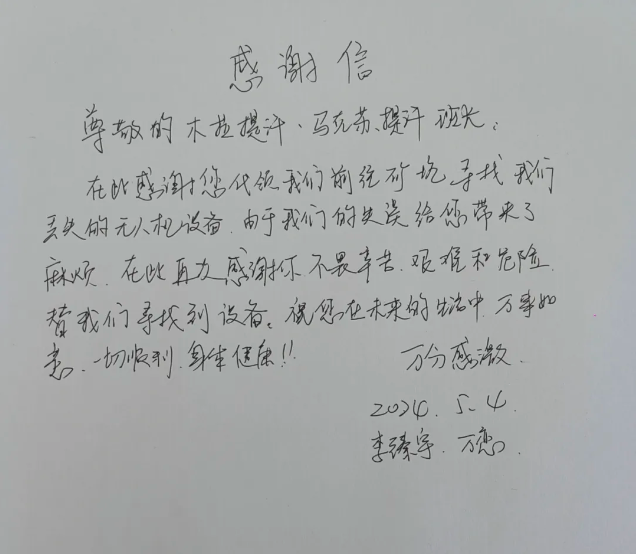 感谢信
尊敬的木拉提汗·马克苏提汗班长:
在此感谢您代领我们前往矿坑寻找我们
丢失的无人机设备.由于我们的失误给您带来了
麻烦.在此再次感谢你不畏辛苦.艰难和危险.
替我们寻找到设备。祝您在未来的生活中万事如
意.一切顺利.身体健康!!
万分感激.
2024.5.4.
李臻宇.万恋.